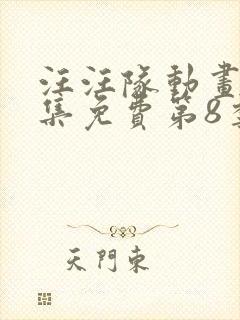 汪汪隊動畫
集免費第8季
天門東